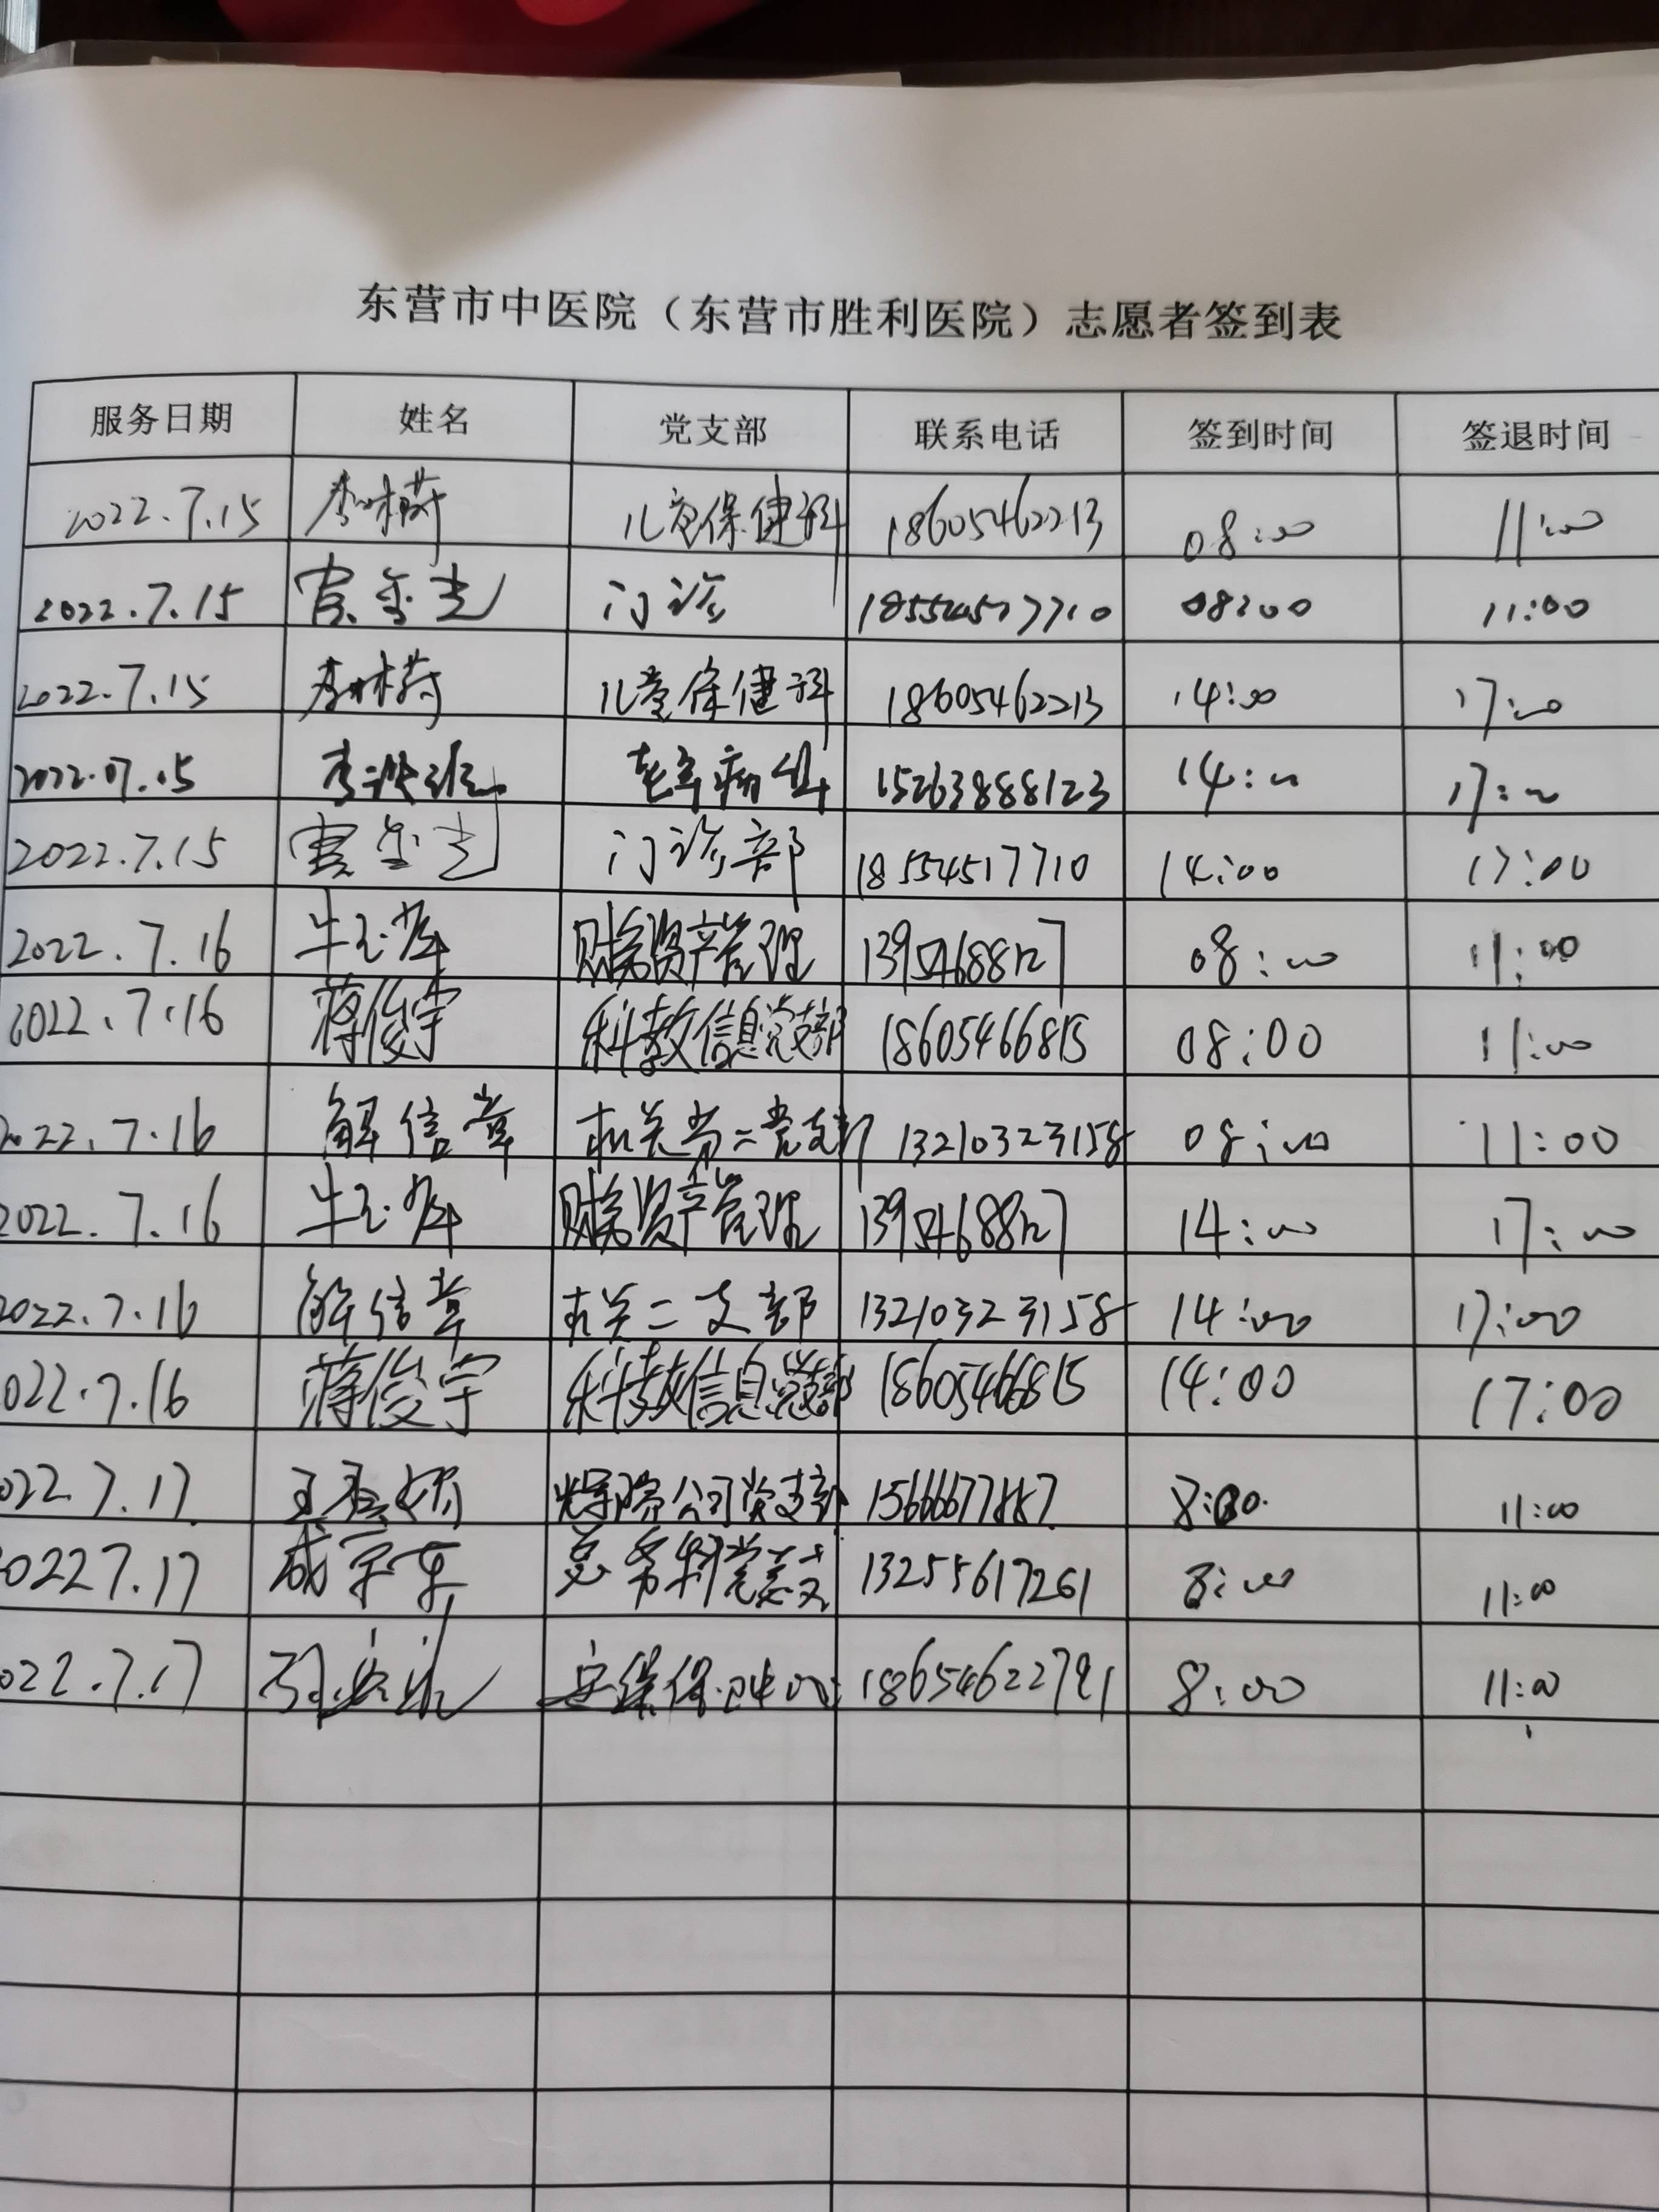 东营市中医院（东营市胜利医院）志愿者签到表
服务日期 姓名 党支部 联系电话 签到时间 签退时间
2022.7.15 儿童保健科 18605462213 08:00 11:00
2022.7.15 门诊 18554517710 08:00 11:00
2022.7.15 儿童保健科 18605462213 14:00 17:00
2022.07.15 老年病 15263888123 14:00 17:00
2022.7.15 门诊部 18554517710 14:00 17:00
2022.7.16 财务资产管理 13954688127 08:00 11:00
2022.7.16 蒋俊宇 科教信息党支部 18605466815 08:00 11:00
2022.7.16 解信章 机关第二党支部 13210323158 08:00 11:00
2022.7.16 财务资产管理 13954688127 14:00 17:00
2022.7.16 解信章 机关二支部 13210323158 14:00 17:00
022.7.16 蒋俊宇 科教信息党支部 18605466815 14:00 17:00
022.7.17 公司党支部 15666677887 8:00 11:00
20227.17 13255617261 8:00 11:00
022.7.17 18654622791 8:00 11:00